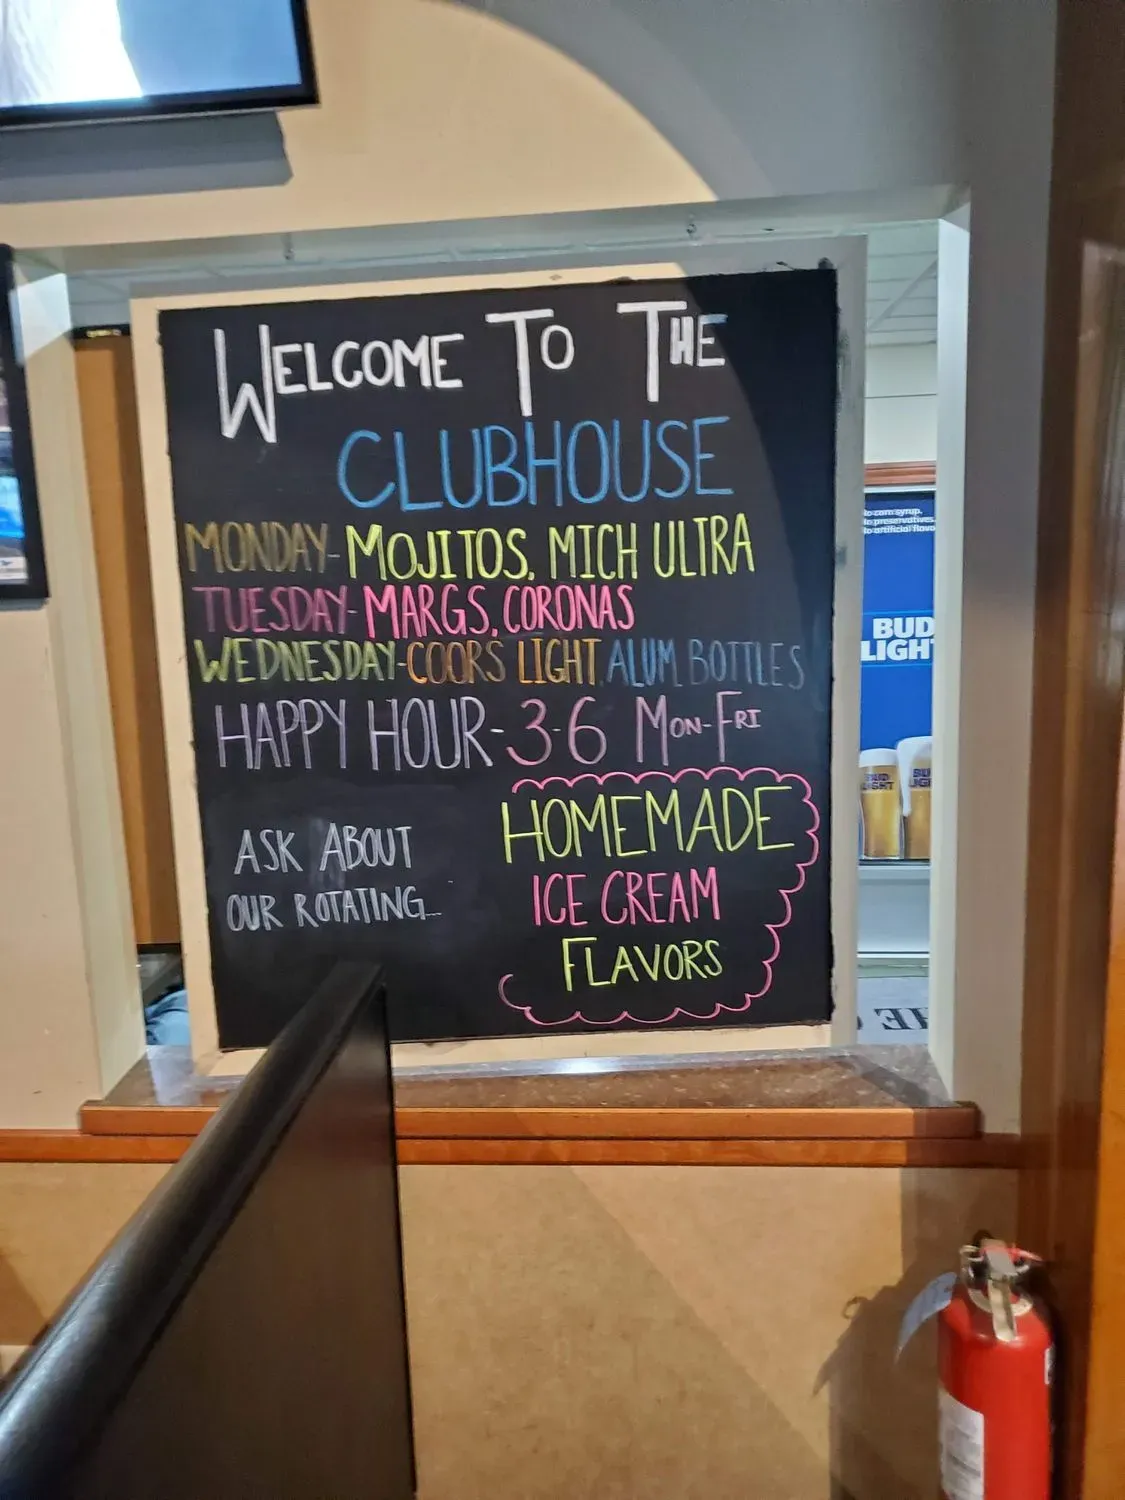 Welcome To The
CLUBHOUSE
MONDAY- MOJITOS, MICH ULTRA
TUESDAY- MARGS, CORONAS
WEDNESDAY- COORS LIGHT, ALUM BOTTLES
HAPPY HOUR- 3-6 Mon-Fri
ASK ABOUT
OUR ROTATING...
HOMEMADE
ICE CREAM
FLAVORS
No corn syrup.
No preservatives.
No artificial flavo
BUD
LIGHT
BUD
LIGHT